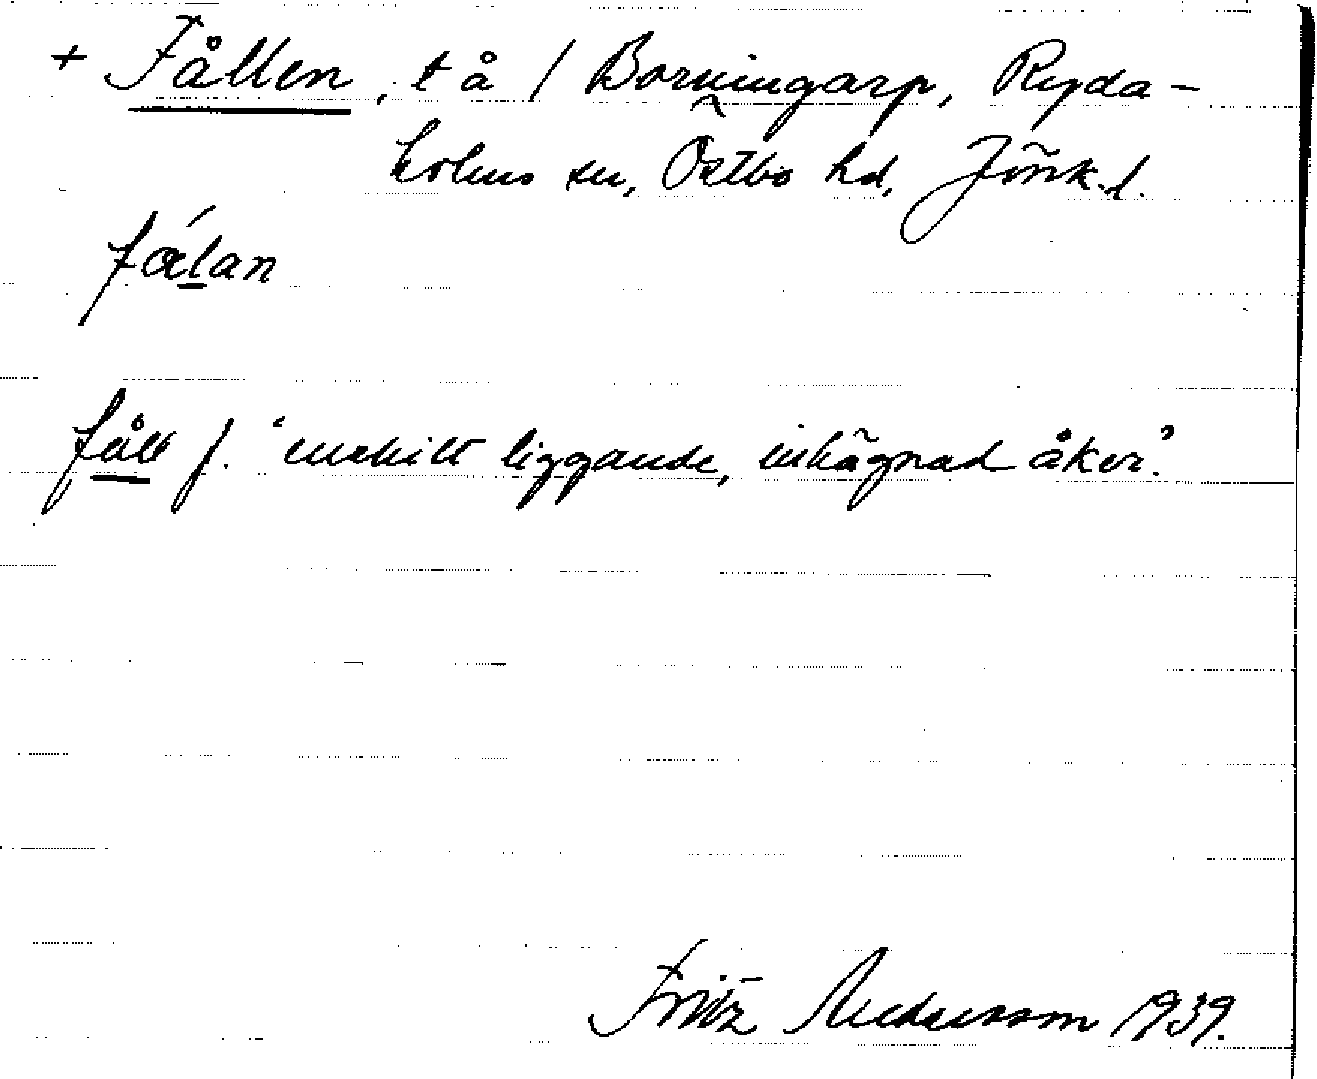 + Fållen, t å / Borningarp, Ryda-
holms sn, Östbo hd, Jönk. l.
fål f. 'enskilt liggande, inhägnad åker.'
Fritz Andersson 1939.